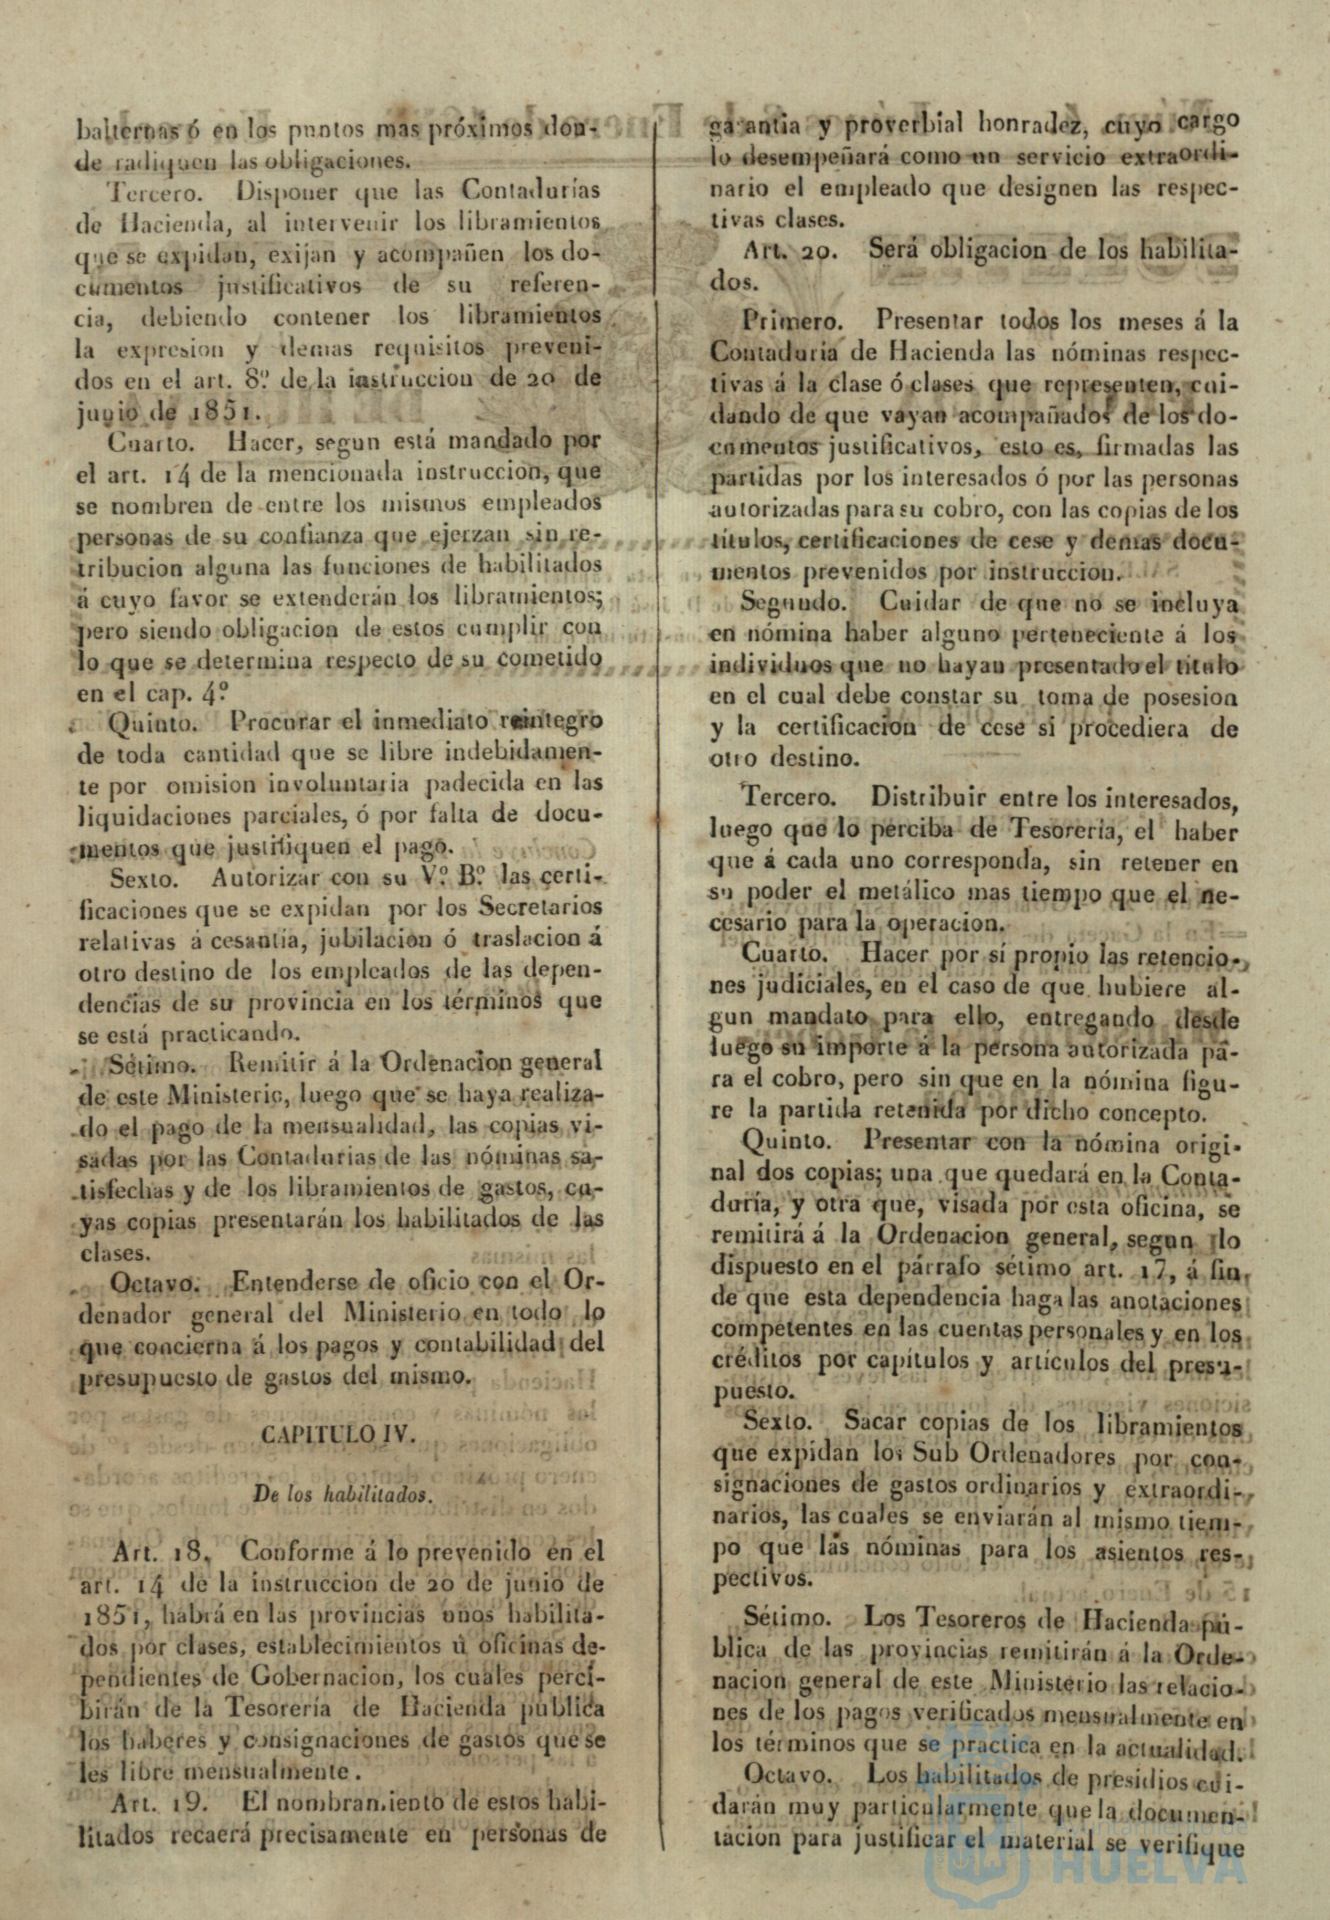 balternas ó en los puntos mas próximos don-
de radiquen las obligaciones.
Tercero. Disponer que las Contadurías
de Hacienda, al intervenir los libramientos
que se expidan, exijan y acompañen los do-
cumentos justificativos de su referen-
cia, debiendo contener los libramientos
la expresion y demas requisitos preveni-
dos en el art. 8.º de la instruccion de 20 de
junio de 1851.
Cuarto. Hacer, segun está mandado por
el art. 14 de la mencionada instruccion, que
se nombren de entre los mismos empleados
personas de su confianza que ejerzan sin re-
tribucion alguna las funciones de habilitados
á cuyo favor se extenderán los libramientos;
pero siendo obligacion de estos cumplir con
lo que se determina respecto de su cometido
en el cap. 4.º
Quinto. Procurar el inmediato reintegro
de toda cantidad que se libre indebidamen-
te por omision involuntaria padecida en las
liquidaciones parciales, ó por falta de docu-
mentos que justifiquen el pago.
Sexto. Autorizar con su V.º B.º las certi-
ficaciones que se expidan por los Secretarios
relativas á cesantía, jubilacion ó traslacion á
otro destino de los empleados de las depen-
dencias de su provincia en los términos que
se está practicando.
Sétimo. Remitir á la Ordenacion general
de este Ministerio, luego que se haya realiza-
do el pago de la mensualidad, las copias vi-
sadas por las Contadurías de las nóminas sa-
tisfechas y de los libramientos de gastos, cu-
yas copias presentarán los habilitados de las
clases.
Octavo. Entenderse de oficio con el Or-
denador general del Ministerio en todo lo
que concierna á los pagos y contabilidad del
presupuesto de gastos del mismo.
CAPITULO IV.
De los habilitados.
Art. 18. Conforme á lo prevenido en el
art. 14 de la instruccion de 20 de junio de
1851, habrá en las provincias unos habilita-
dos por clases, establecimientos ú oficinas de-
pendientes de Gobernacion, los cuales perci-
birán de la Tesorería de Hacienda pública
los haberes y consignaciones de gastos que se
les libre mensualmente.
Art. 19. El nombramiento de estos habi-
litados recaerá precisamente en personas de
garantia y proverbial honradez, cuyo cargo
lo desempeñará como un servicio extraordi-
nario el empleado que designen las respec-
tivas clases.
Art. 20. Será obligacion de los habilita-
dos.
Primero. Presentar todos los meses á la
Contaduría de Hacienda las nóminas respec-
tivas á la clase ó clases que representen, cui-
dando de que vayan acompañados de los do-
cumentos justificativos, esto es, firmadas las
partidas por los interesados ó por las personas
autorizadas para su cobro, con las copias de los
títulos, certificaciones de cese y demas docu-
mentos prevenidos por instruccion.
Segundo. Cuidar de que no se incluya
en nómina haber alguno perteneciente á los
individuos que no hayan presentado el título
en el cual debe constar su toma de posesion
y la certificacion de cese si procediera de
otro destino.
Tercero. Distribuir entre los interesados,
luego que lo perciba de Tesorería, el haber
que á cada uno corresponda, sin retener en
su poder el metálico mas tiempo que el ne-
cesario para la operacion.
Cuarto. Hacer por sí propio las retencio-
nes judiciales, en el caso de que hubiere al-
gun mandato para ello, entregando desde
luego su importe á la persona autorizada pa-
ra el cobro, pero sin que en la nómina figu-
re la partida retenida por dicho concepto.
Quinto. Presentar con la nómina origi-
nal dos copias; una que quedará en la Conta-
duría, y otra que, visada por esta oficina, se
remitirá á la Ordenacion general, segun lo
dispuesto en el párrafo sétimo art. 17, á fin
de que esta dependencia haga las anotaciones
competentes en las cuentas personales y en los
créditos por capítulos y artículos del presu-
puesto.
Sexto. Sacar copias de los libramientos
que expidan los Sub Ordenadores por con-
signaciones de gastos ordinarios y extraordi-
narios, las cuales se enviarán al mismo tiem-
po que las nóminas para los asientos res-
pectivos.
Sétimo. Los Tesoreros de Hacienda pú-
blica de las provincias remitirán á la Orde-
nacion general de este Ministerio las relacio-
nes de los pagos verificados mensualmente en
los términos que se practica en la actualidad.
Octavo. Los habilitados de presidios cui-
darán muy particularmente que la documen-
tacion para justificar el material se verifique
HUELVA